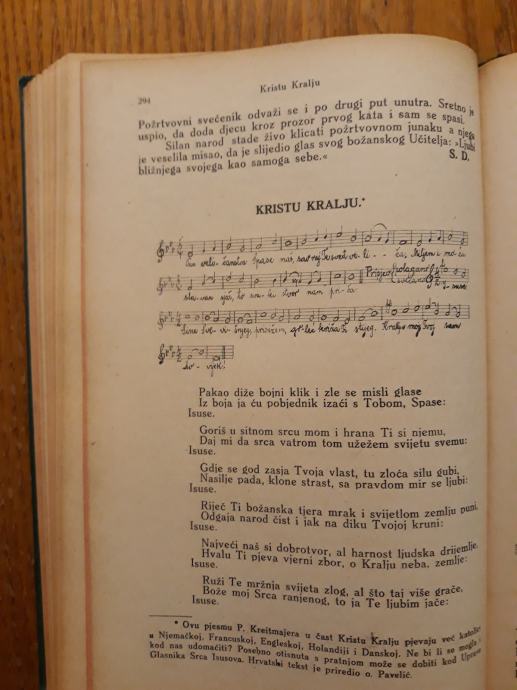 294
Kristu Kralju
Požrtvovni svećenik odvaži se i po drugi put unutra. Sretno je
uspio, da doda djecu kroz prozor prvog kata i sam se spasi.
Silan narod stade živo klicati požrtvovnom junaku a njega
je veselila misao, da je slijedio glas svog božanskog Učitelja: »Ljubi
bližnjega svojega kao samoga sebe.«
S. D.
KRISTU KRALJU.*
Spase naš, sav svoj Ti svet ve- li - - ča,
slavan sjaj, to sva- ki stvor nam pri-ča.
Kralju moj Tvoj sam
do- vijek!
Pakao diže bojni klik i zle se misli glase
Iz boja ja ću pobjednik izaći s Tobom, Spase:
Isuse.
Goriš u sitnom srcu mom i hrana Ti si njemu,
Daj mi da srca vatrom tom užežem svijetu svemu:
Isuse.
Gdje se god zasja Tvoja vlast, tu zloća silu gubi,
Nasilje pada, klone strast, sa pravdom mir se ljubi:
Isuse.
Riječ Ti božanska tjera mrak i svijetlom zemlju puni,
Odgaja narod čist i jak na diku Tvojoj kruni:
Isuse.
Najveći naš si dobrotvor, al harnost ljudska drijemlje,
Hvalu Ti pjeva vjerni zbor, o Kralju neba, zemlje:
Isuse.
Ruži Te mržnja svijeta zlog, al što taj više grače,
Bože moj Srca ranjenog, to ja Te ljubim jače:
Isuse.
* Ovu pjesmu P. Kreitmajera u čast Kristu Kralju pjevaju već katolici
u Njemačkoj, Francuskoj, Engleskoj, Holandiji i Danskoj. Ne bi li se mogla i
kod nas udomaćiti? Posebno otisnuta s pratnjom može se dobiti kod Uprave
Glasnika Srca Isusova. Hrvatski tekst je priredio o. Pavelić.